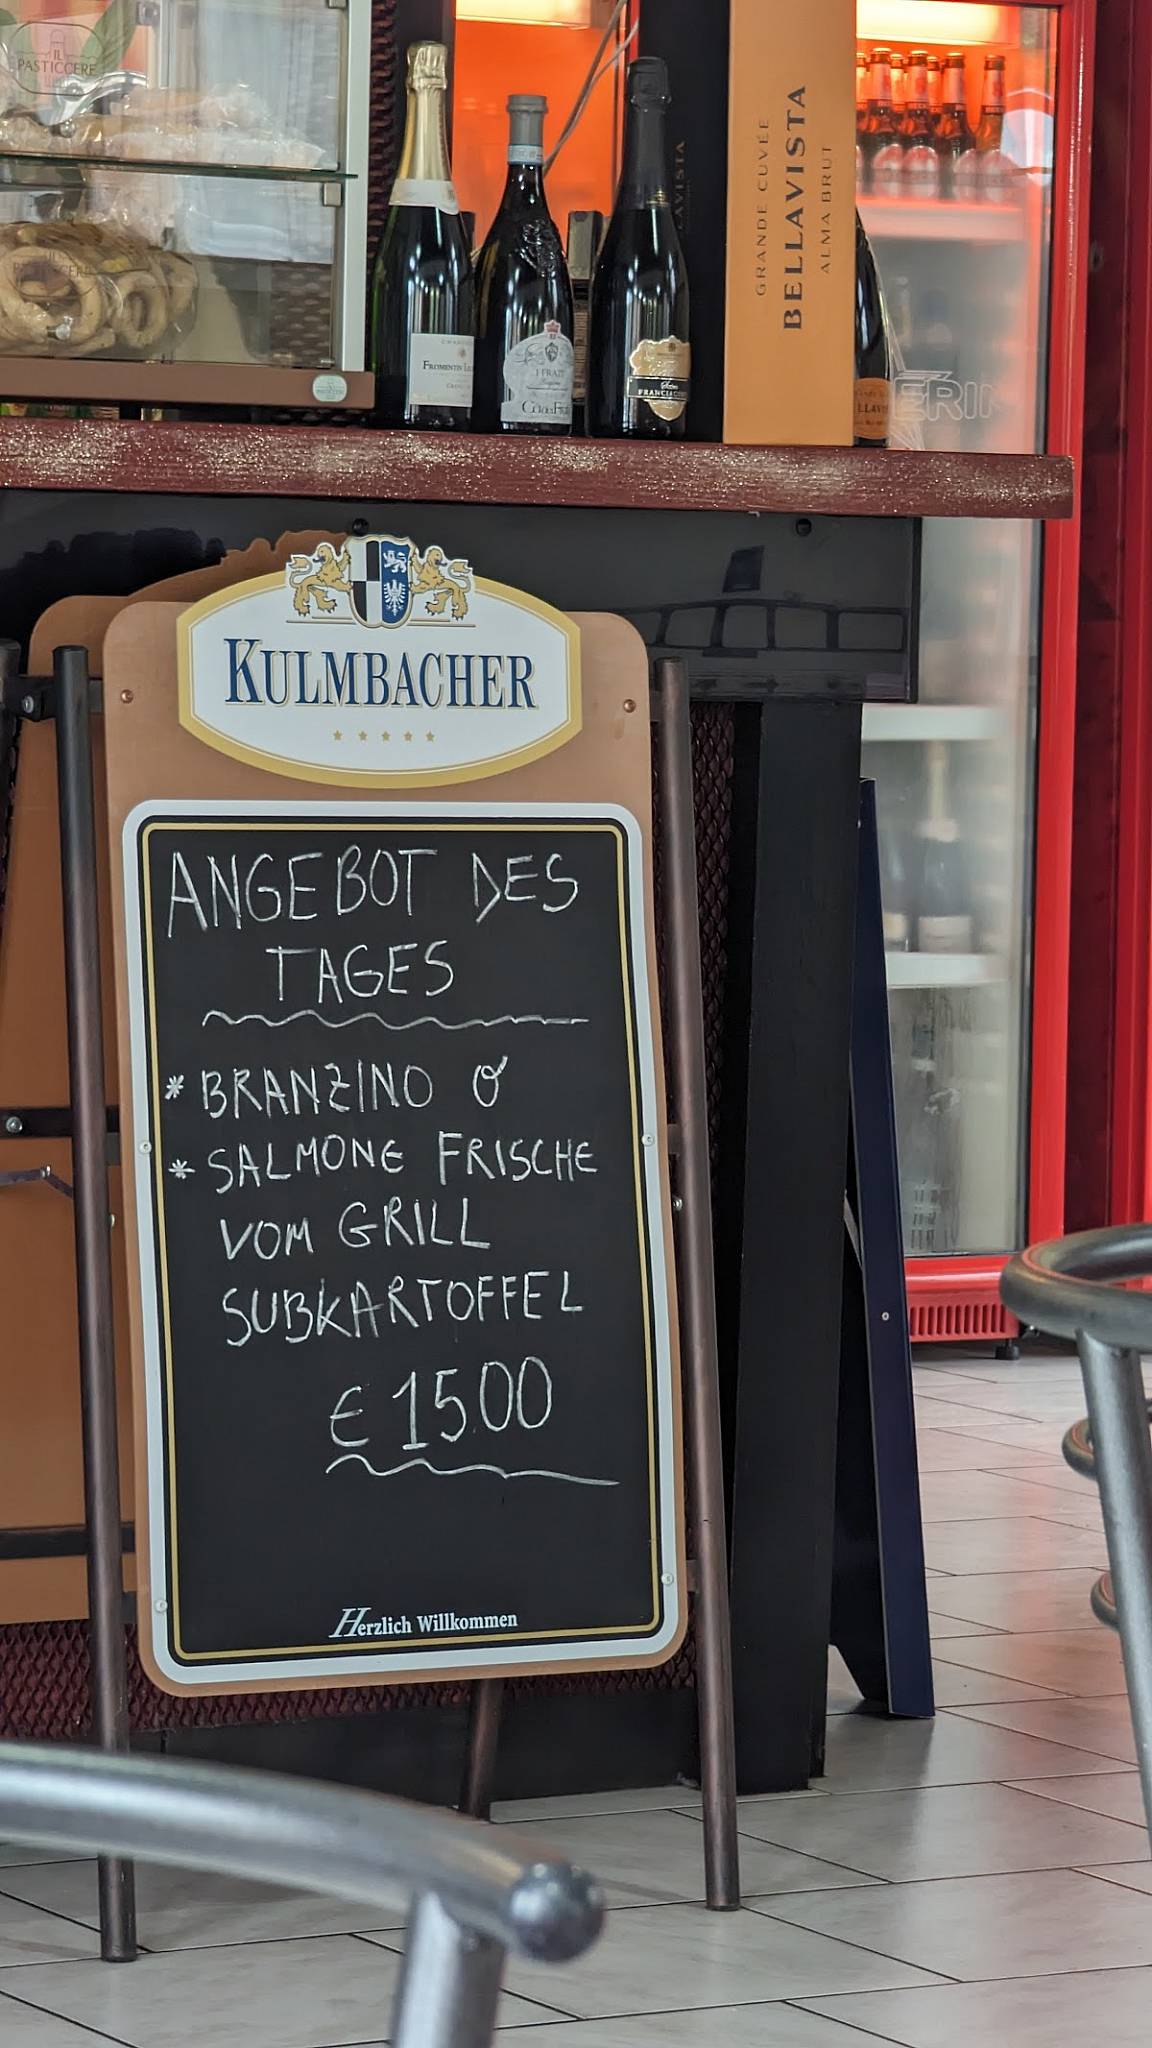 IL
PASTICCERE
FRANCIACORTA
GRANDE CUVÉE
BELLAVISTA
ALMA BRUT
KULMBACHER
ANGEBOT DES
TAGES
* BRANZINO O
* SALMONE FRISCHE
VOM GRILL
SUBKARTOFFEL
€ 15.00
Herzlich Willkommen